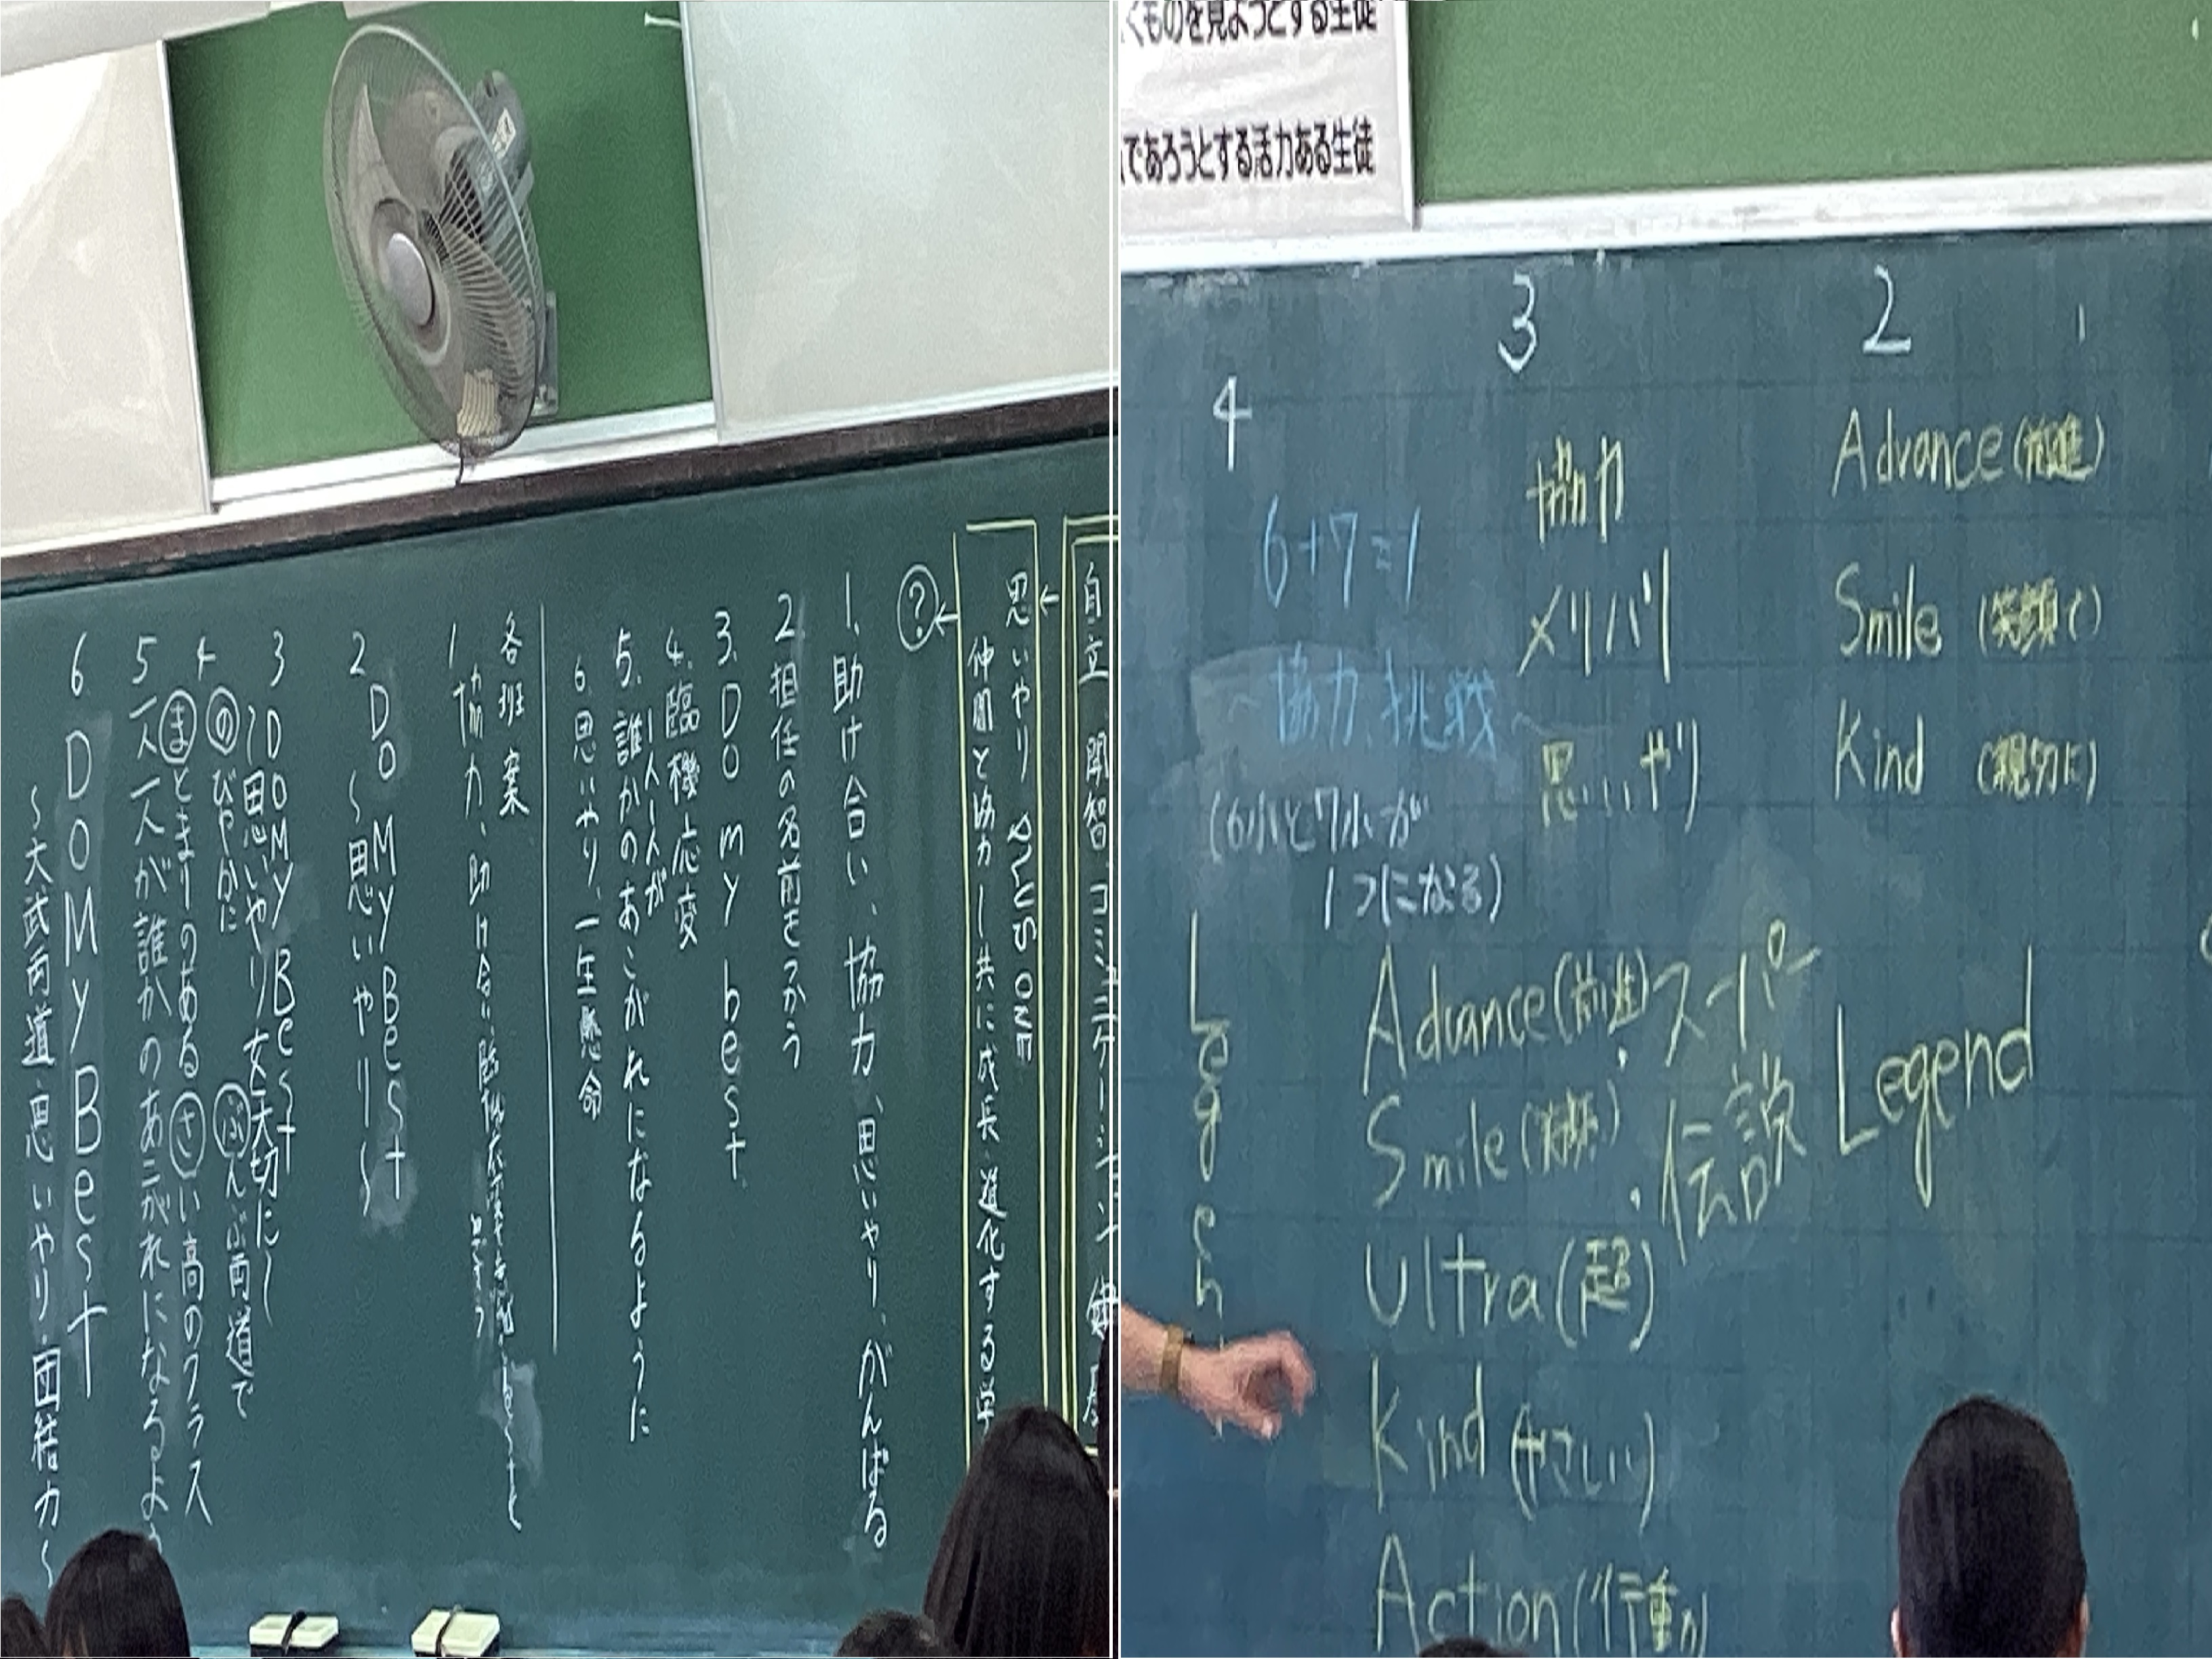 自立 開智 コミュニケーション 健康
思いやり PLUS ONE
仲間と協力し共に成長・進化する学
?
1. 助け合い、協力、思いやり、がんばる
2. 担任の名前をつかう
3. Do my best
4. 臨機応変
一人一人が
5. 誰かのあこがれになるように
6. 思いやり、一生懸命
各班案
1 協力、助け合い、臨機応変
2 Do My Best
~思いやり~
3 DO My Best
~思いやりを大切に~
4 のびやかに ぶんぶ両道で
まとまりのある さい高のクラス
5 一人一人が誰かのあこがれになるよう
6 DO My Best
~大武両道・思いやり・団結力~
くものを見ようとする生徒
であろうとする活力ある生徒
1
2
Advance (前進)
Smile (笑顔で)
Kind (親切に)
Legend
3
協力
メリハリ
思いやり
スーパー
伝説
4
6+7=1
~協力、挑戦~
(6小と7小が
1つになる)
Advance (前進)
Smile (笑顔)
Ultra (超)
Kind (やさしい)
Action (行動)
Legen